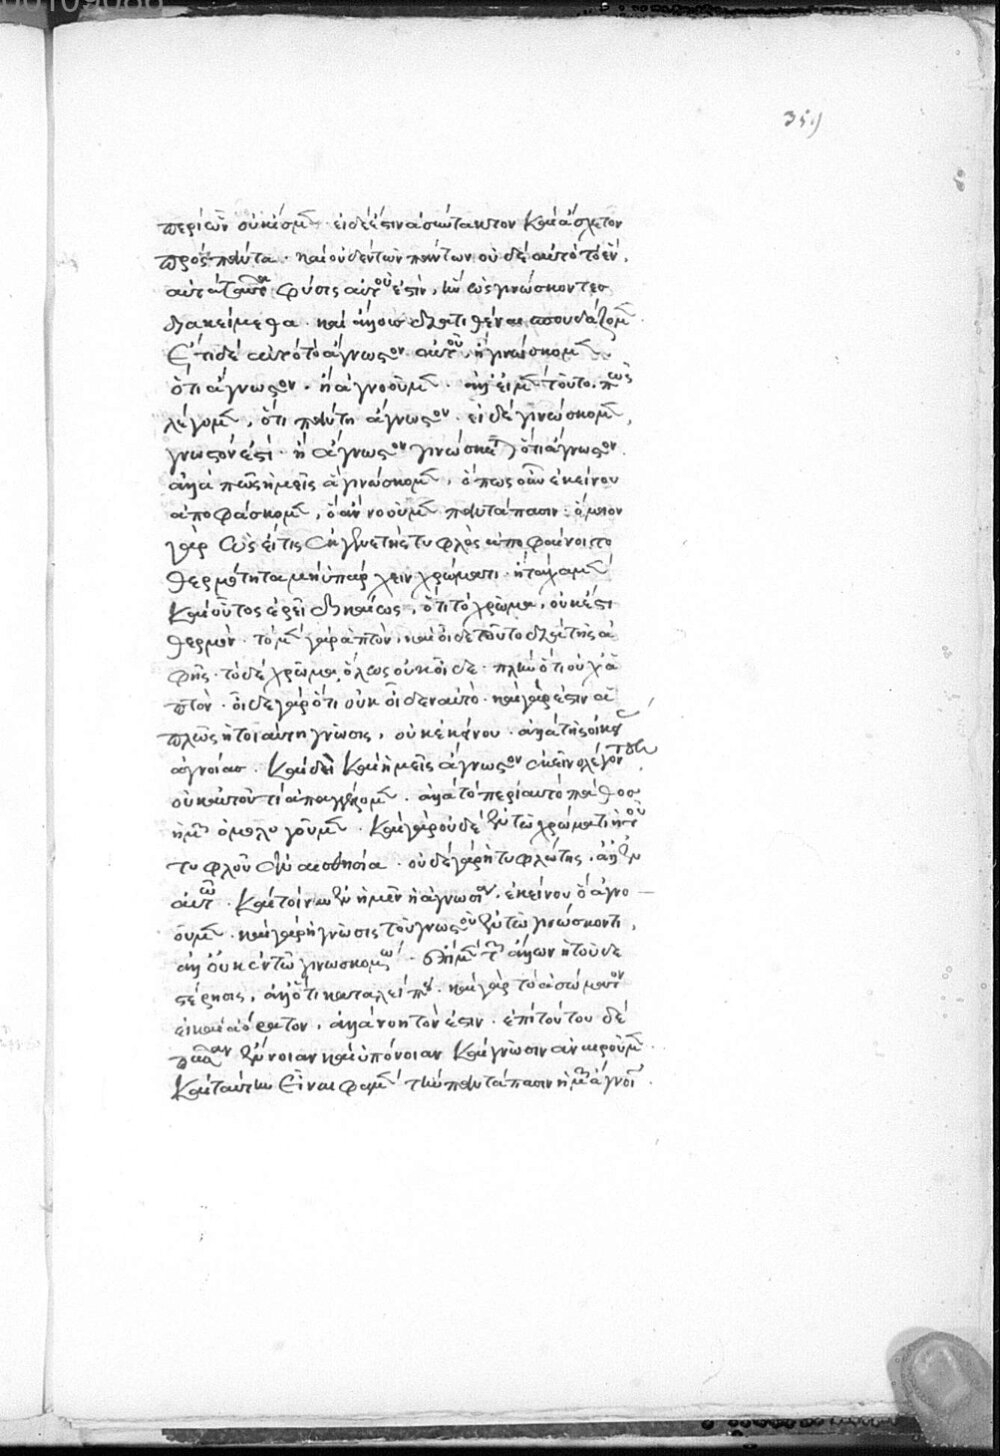 359
περὶ ὧν οὐκ ἴσμεν. εἰ δέ ἐστιν ἀσύντακτον καὶ ἄσχετον
πρὸς πάντα. καὶ οὐδὲν τῶν πάντων οὐδὲ αὐτὸ τὸ ἕν,
αὐτὰ ταῦτα φύσις αὐτοῦ ἐστιν, ἣν ὡς γινώσκοντες
διακείμεθα. καὶ ἄλλους διατιθέναι σπουδάζομεν.
Ἔτι δὲ αὐτὸ τὸ ἄγνωστον αὐτοῦ, ἢ γινώσκομεν
ὅτι ἄγνωστον. ἢ ἀγνοοῦμεν. ἀλλ' εἰ μὲν τοῦτο. πῶς
λέγομεν, ὅτι πάντη ἄγνωστον. εἰ δὲ γινώσκομεν,
γνωστόν ἐστι. ἢ ἄγνωστον γινώσκεται ὅτι ἄγνωστον.
ἀλλὰ πῶς ἡμεῖς ἃ γινώσκομεν, ὅπως οὖν ἐκείνου
ἀποφάσκομεν, ὃ ἀγνοοῦμεν παντάπασιν. ὅμοιον
γὰρ ὡς εἴ τις ἐκ γενετῆς τυφλὸς ἀποφαίνοιτο
θερμότητα μὴ ὑπάρχειν χρώματι. ἢ τάχα μὲν
καὶ οὗτος ἐρεῖ δικαίως, ὅτι τὸ χρῶμα, οὐκ ἔστι
θερμόν. τὸ μὲν γὰρ ἁπτόν, καὶ οἶδε τοῦτο διὰ τῆς ἁ
φῆς. τὸ δὲ χρῶμα ὅλως οὐκ οἶδε. πλὴν ὅτι οὐχ ἁ
πτόν. οἶδε γὰρ ὅτι οὐκ οἶδεν αὐτό. καὶ γάρ ἐστιν οὐ
πλῶς ἡ τοιαύτη γνῶσις, οὐκ ἐκείνου. ἀλλὰ τῆς οἰκείας
ἀγνοίας. καὶ δεῖ καὶ ἡμεῖς ἄγνωστον ἐκεῖνο λέγοντες
οὐκ αὐτοῦ τι ἀπαγγέλλομεν. ἀλλὰ τὸ περὶ αὐτὸ πάθος
ἡμῶν ὁμολογοῦμεν. καὶ γὰρ οὐδὲ ἐν τῷ χρώματι ἡ τοῦ
τυφλοῦ ἀναισθησία. οὐδὲ γὰρ ἡ τυφλότης. ἀλλ' ἐν
αὐτῷ. καὶ τοίνυν ἐν ἡμῖν ἡ ἄγνοια. ἐκείνου ὃ ἀγνο
οῦμεν. καὶ γὰρ ἡ γνῶσις τοῦ γνωστοῦ ἐν τῷ γινώσκοντι,
ἀλλ' οὐκ ἐν τῷ γινωσκομένῳ.
στέρησις, ἀλλ' ὅτι καταλείπει. καὶ γὰρ τὸ ἀσώματον
εἰ καὶ ἀόρατον. ἀλλὰ νοητόν ἐστιν. ἐπὶ τούτου δὲ
πᾶσαν ἔννοιαν καὶ ὑπόνοιαν καὶ γνῶσιν ἀναιροῦμεν.
καὶ ταύτην εἶναι φαμὲν τὴν παντάπασιν ἡμῶν ἄγνοιαν.